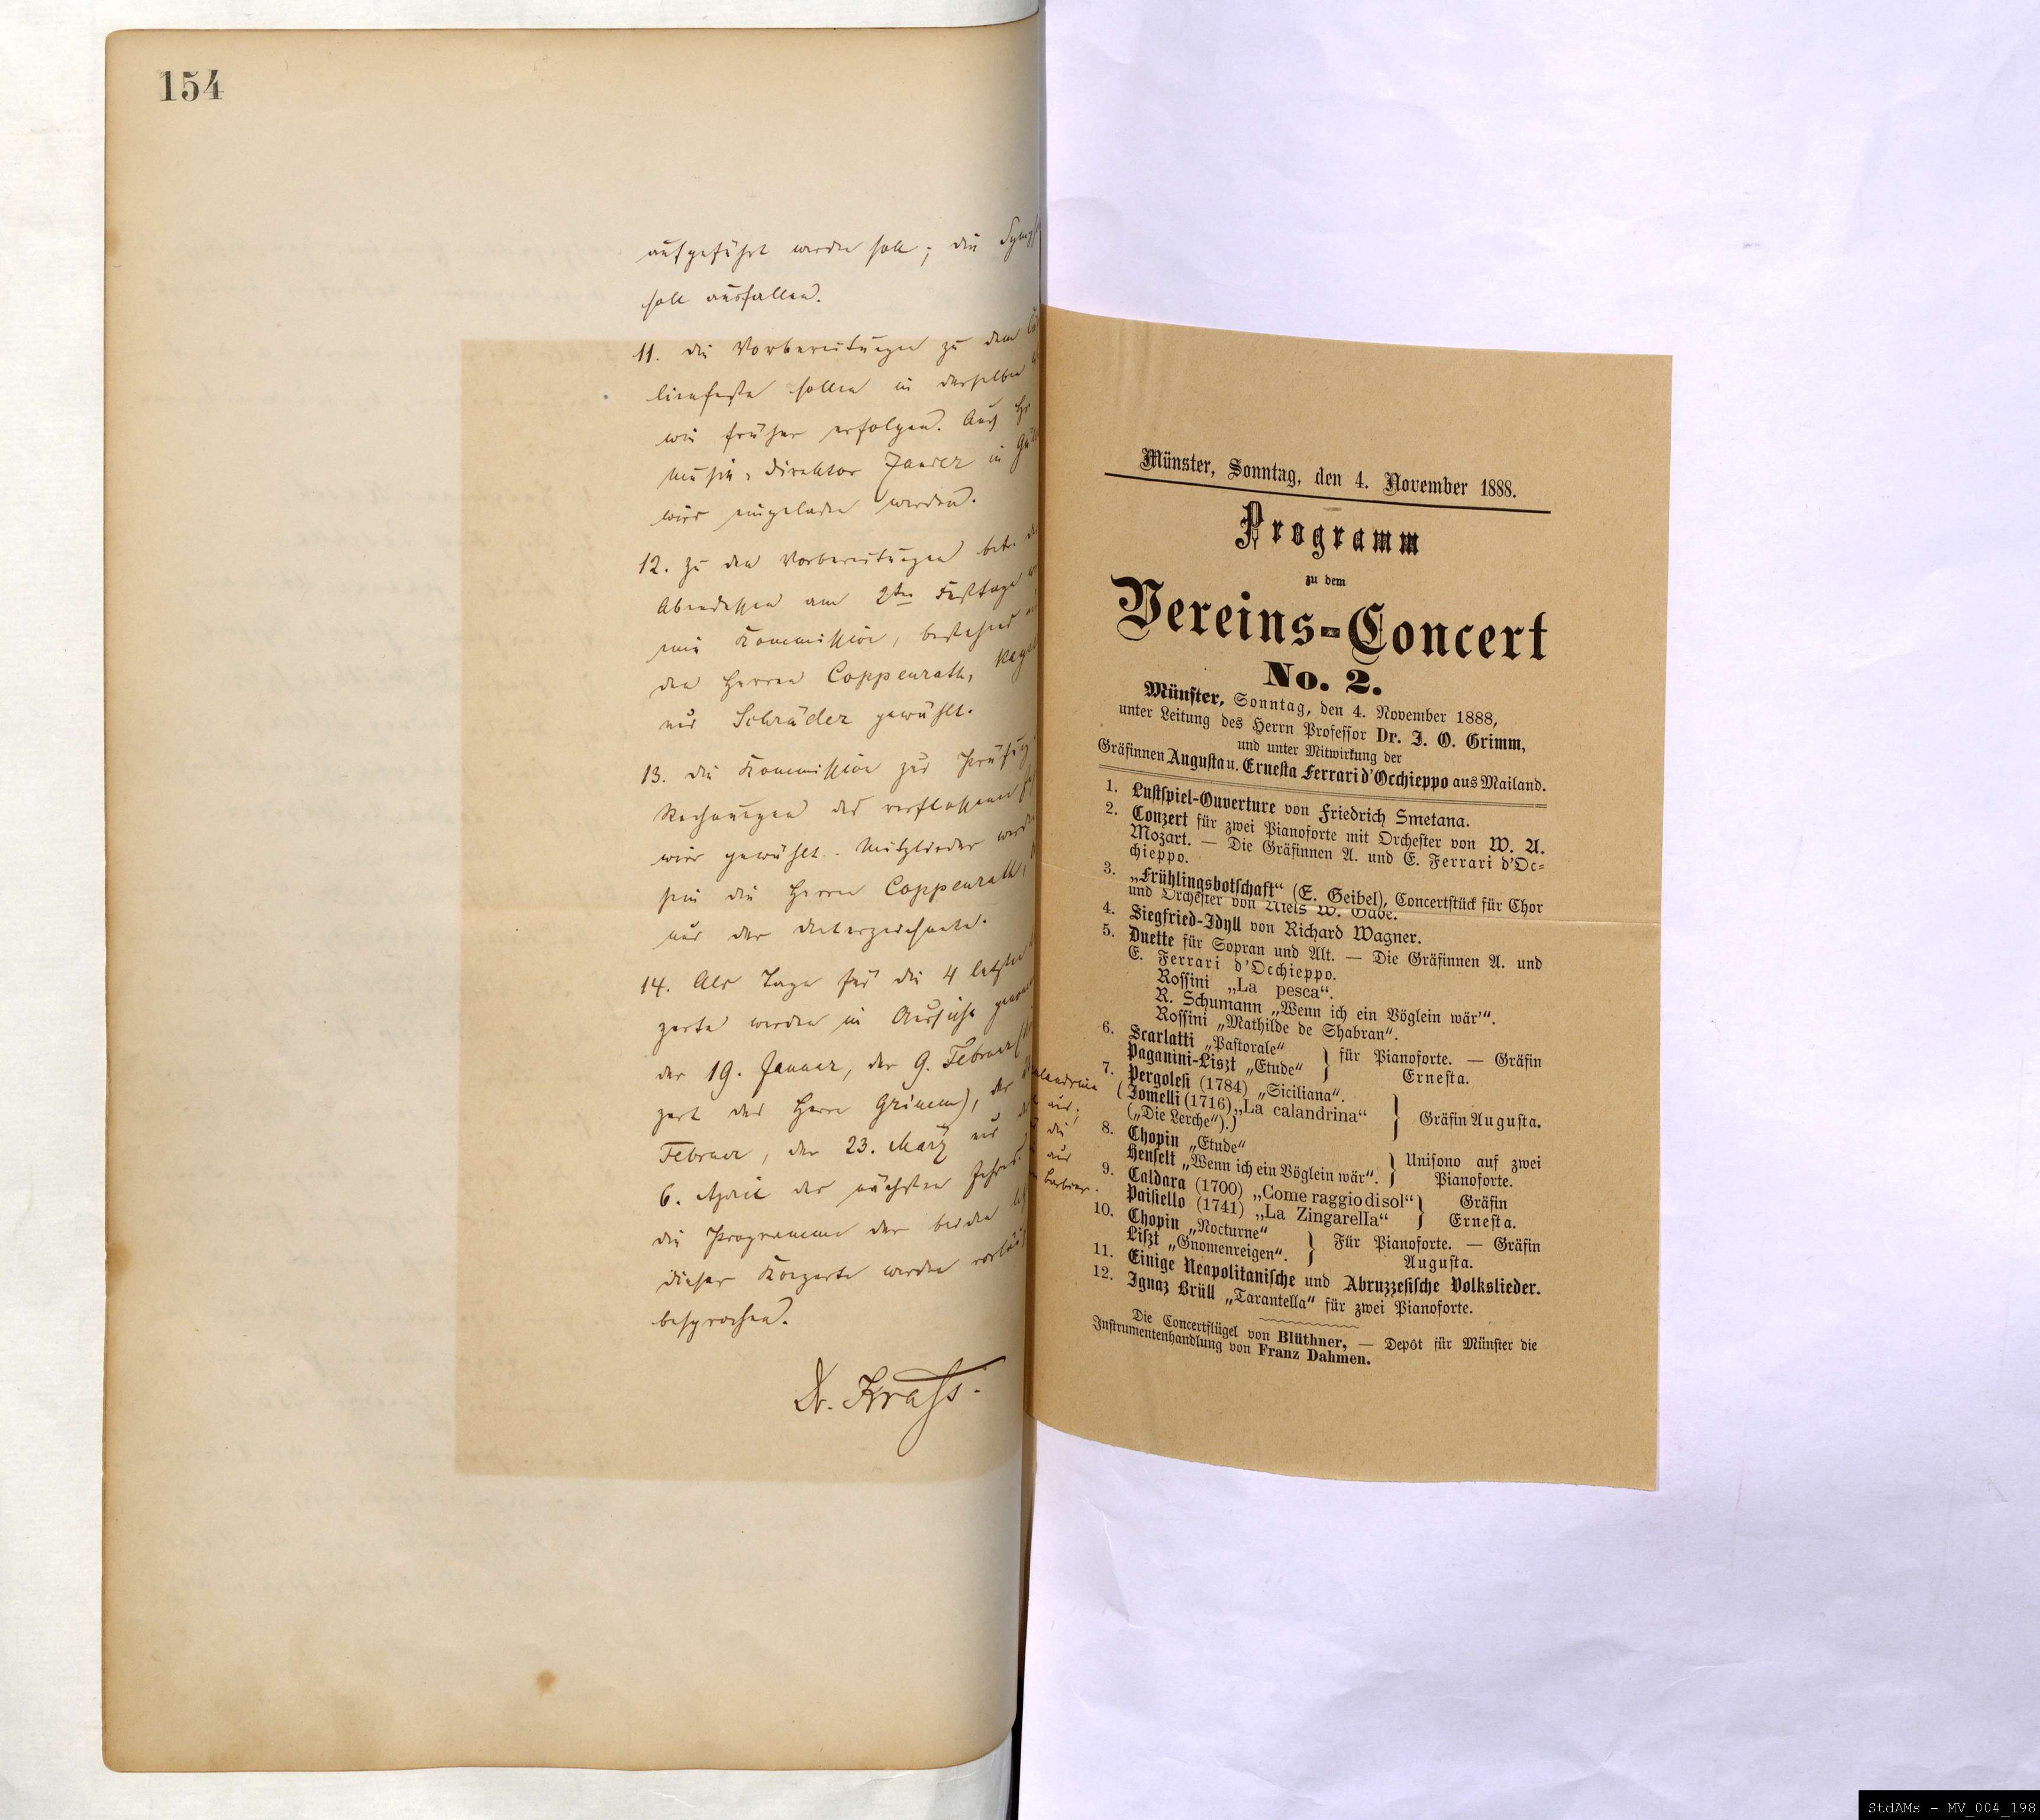 154
aufgeführt werden soll; die
soll ausfallen.
11. die Vorbereitungen zu dem
lienfeste sollen in derselben
wie früher erfolgen. Auch
Musik-Direktor in
wird eingeladen werden.
12. zu den Vorbereitungen betr.
Abendessen am 2ten Festtage
eine Kommission, bestehend
den Herren Coppenrath,
und Schräder gewählt.
13. die Kommission zur
Rechnungen des verflossenen
wird gewählt. Mitglieder
sein die Herren Coppenrath,
und der Unterzeichnete.
14. Als Tage für die 4 letzten
zerte werden in Aussicht
der 19. Januar, der 9. Februar
zert des Herrn Grimm), der
Februar, der 23. März und
6. April des nächsten
die Programme der beiden
dieser Konzerte werden
besprochen.
Dr. Krass.
Münster, Sonntag, den 4. November 1888.
Programm
zu dem
Vereins-Concert
No. 2.
Münster, Sonntag, den 4. November 1888,
unter Leitung des Herrn Professor Dr. J. O. Grimm,
und unter Mitwirkung der
Gräfinnen Augusta u. Ernesta Ferrari d'Occhieppo aus Mailand.
1. Lustspiel-Ouverture von Friedrich Smetana.
2. Conzert für zwei Pianoforte mit Orchester von W. A.
Mozart. — Die Gräfinnen A. und E. Ferrari d'Oc-
chieppo.
3. „Frühlingsbotschaft“ (E. Geibel), Concertstück für Chor
und Orchester von Niels W. Gade.
4. Siegfried-Idyll von Richard Wagner.
5. Duette für Sopran und Alt. — Die Gräfinnen A. und
E. Ferrari d'Occhieppo.
Rossini „La pesca“.
R. Schumann „Wenn ich ein Vöglein wär'“.
Rossini „Mathilde de Shabran“.
6. Scarlatti „Pastorale“
Paganini-Liszt „Etude“ } für Pianoforte. — Gräfin
Ernesta.
7. Pergolesi (1784) „Siciliana“.
(Jomelli (1716) „La calandrina“
(„Die Lerche“).) } Gräfin Augusta.
8. Chopin „Etude“
Henselt „Wenn ich ein Vöglein wär“. } Unisono auf zwei
Pianoforte.
9. Caldara (1700) „Come raggio di sol“
Paisiello (1741) „La Zingarella“ } Gräfin
Ernesta.
10. Chopin „Nocturne“
Liszt „Gnomenreigen“. } Für Pianoforte. — Gräfin
Augusta.
11. Einige Neapolitanische und Abruzzesische Volkslieder.
12. Ignaz Brüll „Tarantella“ für zwei Pianoforte.
Die Concertflügel von Blüthner, — Depôt für Münster die
Instrumentenhandlung von Franz Dahmen.
aus;
die
aus
StdAMs - MV_004_198